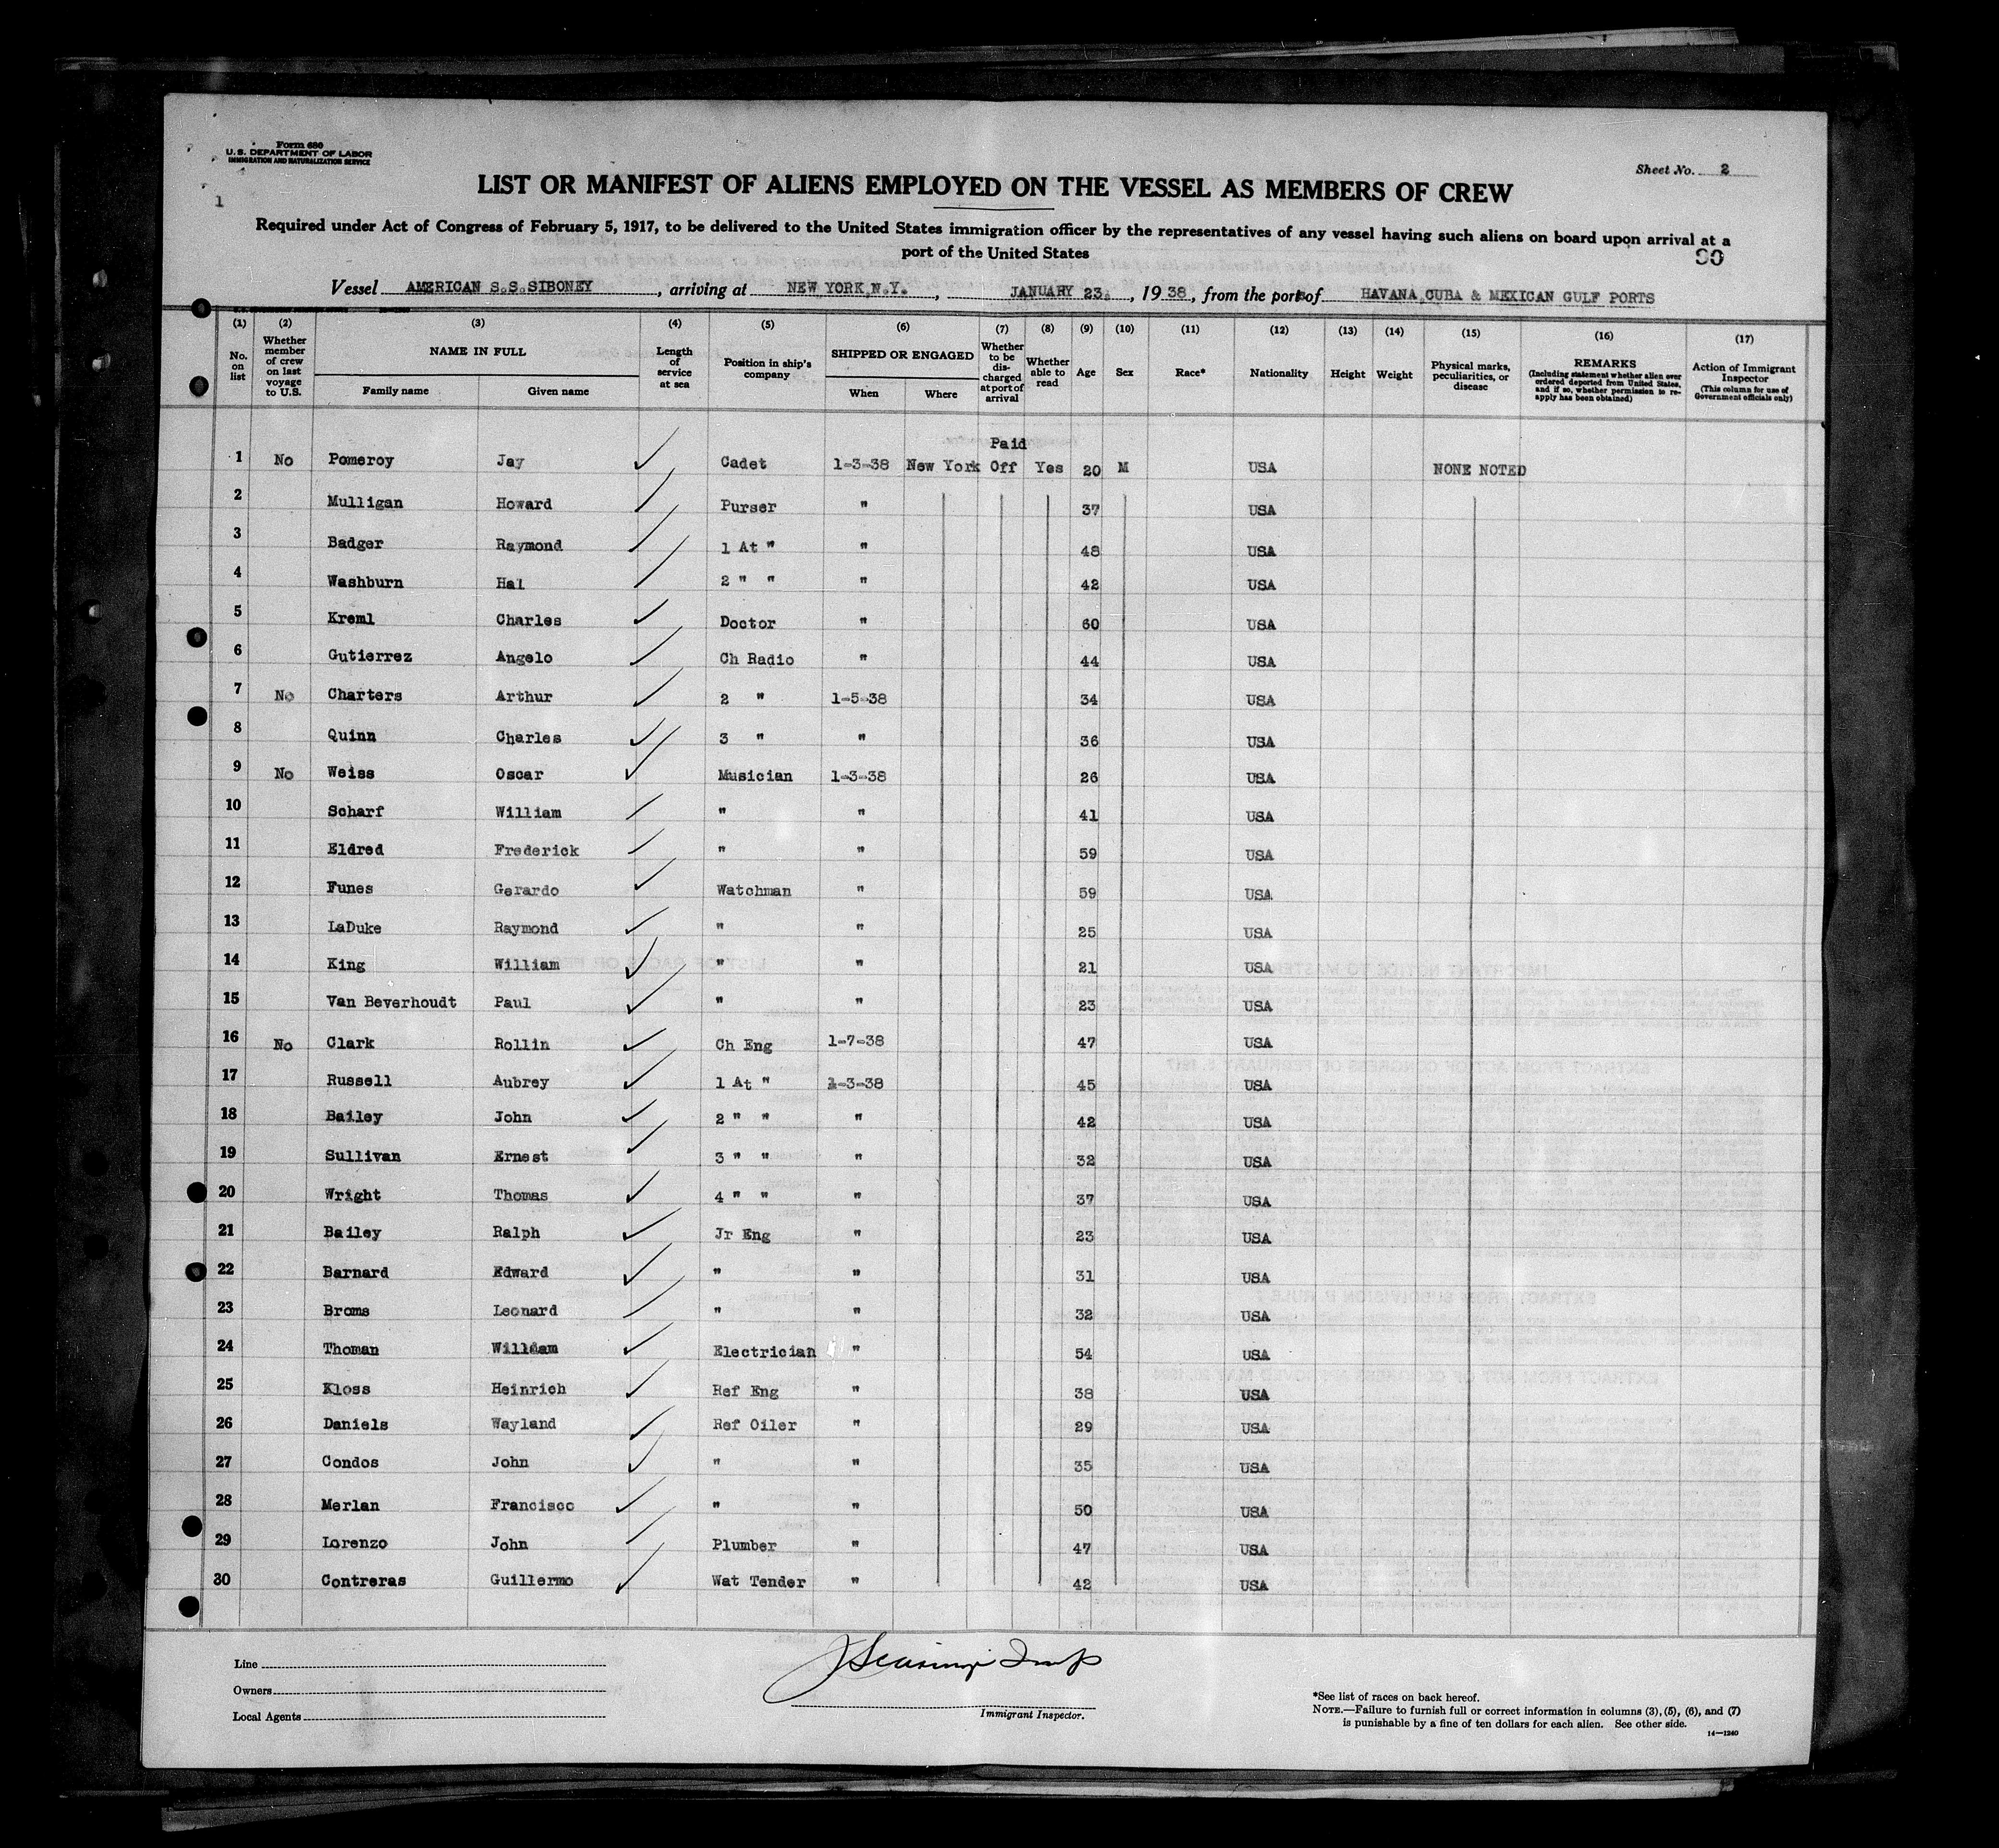 Form 680
U. S. DEPARTMENT OF LABOR
IMMIGRATION AND NATURALIZATION SERVICE
1
Sheet No. 2
LIST OR MANIFEST OF ALIENS EMPLOYED ON THE VESSEL AS MEMBERS OF CREW
Required under Act of Congress of February 5, 1917, to be delivered to the United States immigration officer by the representatives of any vessel having such aliens on board upon arrival at a
port of the United States
90
Vessel AMERICAN S.S. SIBONEY, arriving at NEW YORK N.Y., JANUARY 23, 1938, from the ports of HAVANA CUBA & MEXICAN GULF PORTS
(1) (2) (3) (4) (5) (6) (7) (8) (9) (10) (11) (12) (13) (14) (15) (16) (17)
No. on list
Whether member of crew on last voyage to U.S.
NAME IN FULL
Family name
Given name
Length of service at sea
Position in ship's company
SHIPPED OR ENGAGED
When
Where
Whether to be discharged at port of arrival
Whether able to read
Age
Sex
Race*
Nationality
Height
Weight
Physical marks, peculiarities, or disease
REMARKS
(Including statement whether alien ever ordered deported from United States, and if so, whether permission to re-apply has been obtained)
Action of Immigrant Inspector
(This column for use of Government officials only)
1 No Pomeroy Jay Cadet 1-3-38 New York Paid Off Yes 20 M USA NONE NOTED
2 Mulligan Howard Purser " 37 USA
3 Badger Raymond 1 At " " 48 USA
4 Washburn Hal 2 " " " 42 USA
5 Kreml Charles Doctor " 60 USA
6 Gutierrez Angelo Ch Radio " 44 USA
7 No Charters Arthur 2 " 1-5-38 34 USA
8 Quinn Charles 3 " " 36 USA
9 No Weiss Oscar Musician 1-3-38 26 USA
10 Scharf William " " 41 USA
11 Eldred Frederick " " 59 USA
12 Funes Gerardo Watchman " 59 USA
13 LaDuke Raymond " " 25 USA
14 King William " " 21 USA
15 Van Beverhoudt Paul " " 23 USA
16 No Clark Rollin Ch Eng 1-7-38 47 USA
17 Russell Aubrey 1 At " 1-3-38 45 USA
18 Bailey John 2 " " " 42 USA
19 Sullivan Ernest 3 " " " 32 USA
20 Wright Thomas 4 " " " 37 USA
21 Bailey Ralph Jr Eng " 23 USA
22 Barnard Edward " " 31 USA
23 Broms Leonard " " 32 USA
24 Thoman William Electrician " 54 USA
25 Kloss Heinrich Ref Eng " 38 USA
26 Daniels Wayland Ref Oiler " 29 USA
27 Condos John " " 35 USA
28 Merlan Francisco " " 50 USA
29 Lorenzo John Plumber " 47 USA
30 Contreras Guillermo Wat Tender " 42 USA
Line
Owners
Local Agents
Immigrant Inspector.
*See list of races on back hereof.
NOTE.—Failure to furnish full or correct information in columns (3), (5), (6), and (7)
is punishable by a fine of ten dollars for each alien. See other side.
14—1240